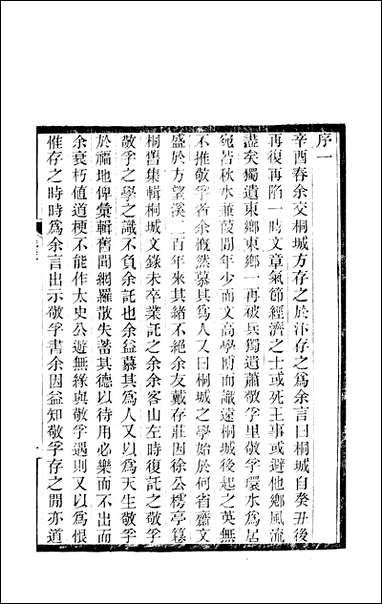 序一
辛酉春余交桐城方存之於汴存之爲余言曰桐城自癸丑後
再復再陷一時文章氣節經濟之士或死王事或避他鄉風流
盡矣獨遺東鄉東鄉一再破兵獨遺蕭敬孚里敬孚環水爲居
宛若秋水蒹葭閒年少而文高學博而識遠桐城後起之英無
不推敬孚者余慨然慕其爲人又曰桐城之學始於何省齋文
盛於方望溪二百年來其緒不絕余友戴存莊因徐公樗亭篡
桐舊集輯桐城文錄未卒業託之余余客山左時復託之敬孚
敬孚之學之識不負余託也余益慕其爲人又以爲天生敬孚
於福地俾彙輯舊聞網羅散失蓄其德以待用必樂而不出而
余衰朽値道梗不能作太史公遊無緣與敬孚遇則又以爲恨
惟存之時時爲余言出示敬孚書余因益知敬孚存之閒亦道